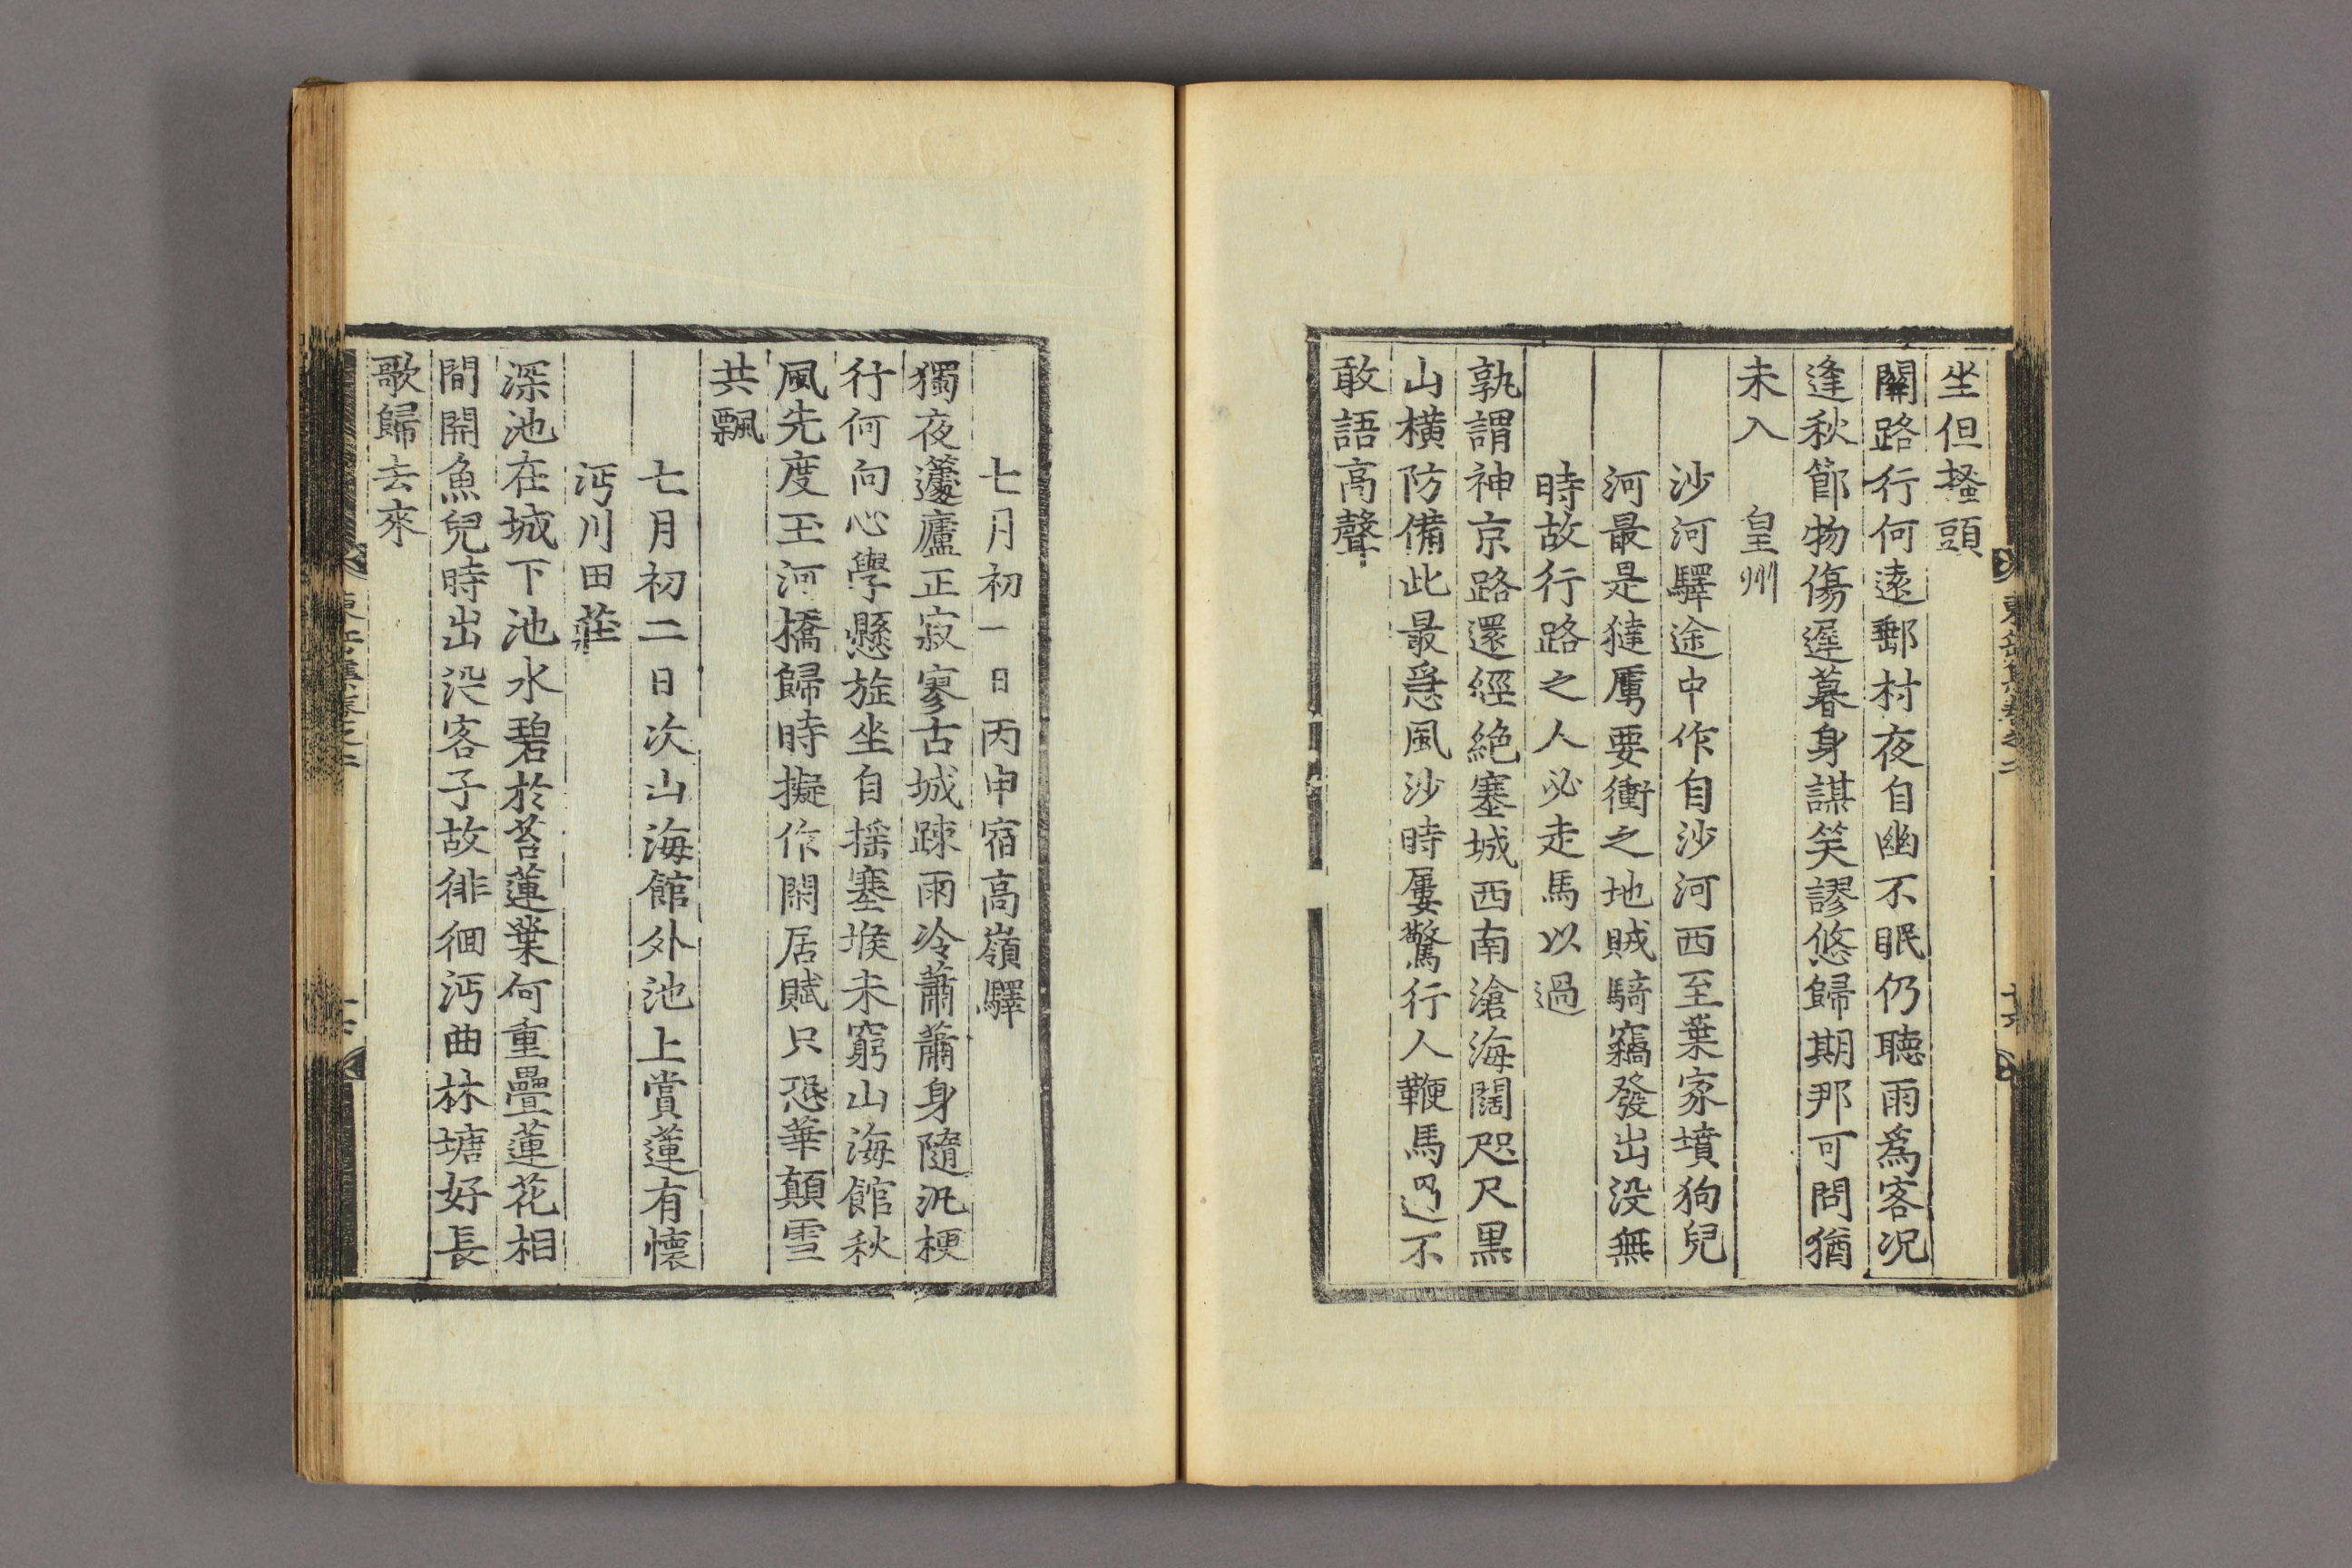 坐但搔頭
關路行何遠郵村夜自幽不眠仍聽雨爲客况
逢秋節物傷遲暮身謀笑謬悠歸期那可問猶
未入皇州
沙河驛途中作自沙河西至葉家墳狗兒
河最是㺚虜要衝之地賊騎竊發出没無
時故行路之人必走馬以過
孰謂神京路還經絶塞城西南滄海闊咫尺黒
山横防備此最急風沙時屢驚行人鞭馬過不
敢語高聲
七月初一日丙申宿高嶺驛
獨夜蘧廬正寂寥古城踈雨冷蕭蕭身隨汎梗
行何向心學懸旌坐自揺塞堠未窮山海館秋
風先度玉河橋歸時擬作閑居賦只恐華顛雪
共飄
七月初二日次山海館外池上賞蓮有懷
沔川田莊
深池在城下池水碧於苔蓮葉何重疊蓮花相
間開魚兒時出没客子故徘徊沔曲林塘好長
歌歸去來